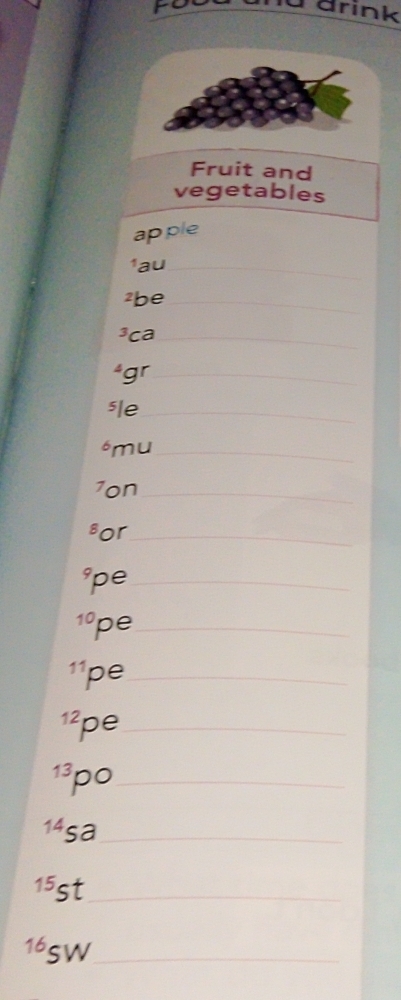 Food and drink
Fruit and
vegetables
apple
1au
2be
3ca
4gr
5le
6mu
7on
8or
9pe
10pe
11pe
12pe
13po
14sa
15st
16sw